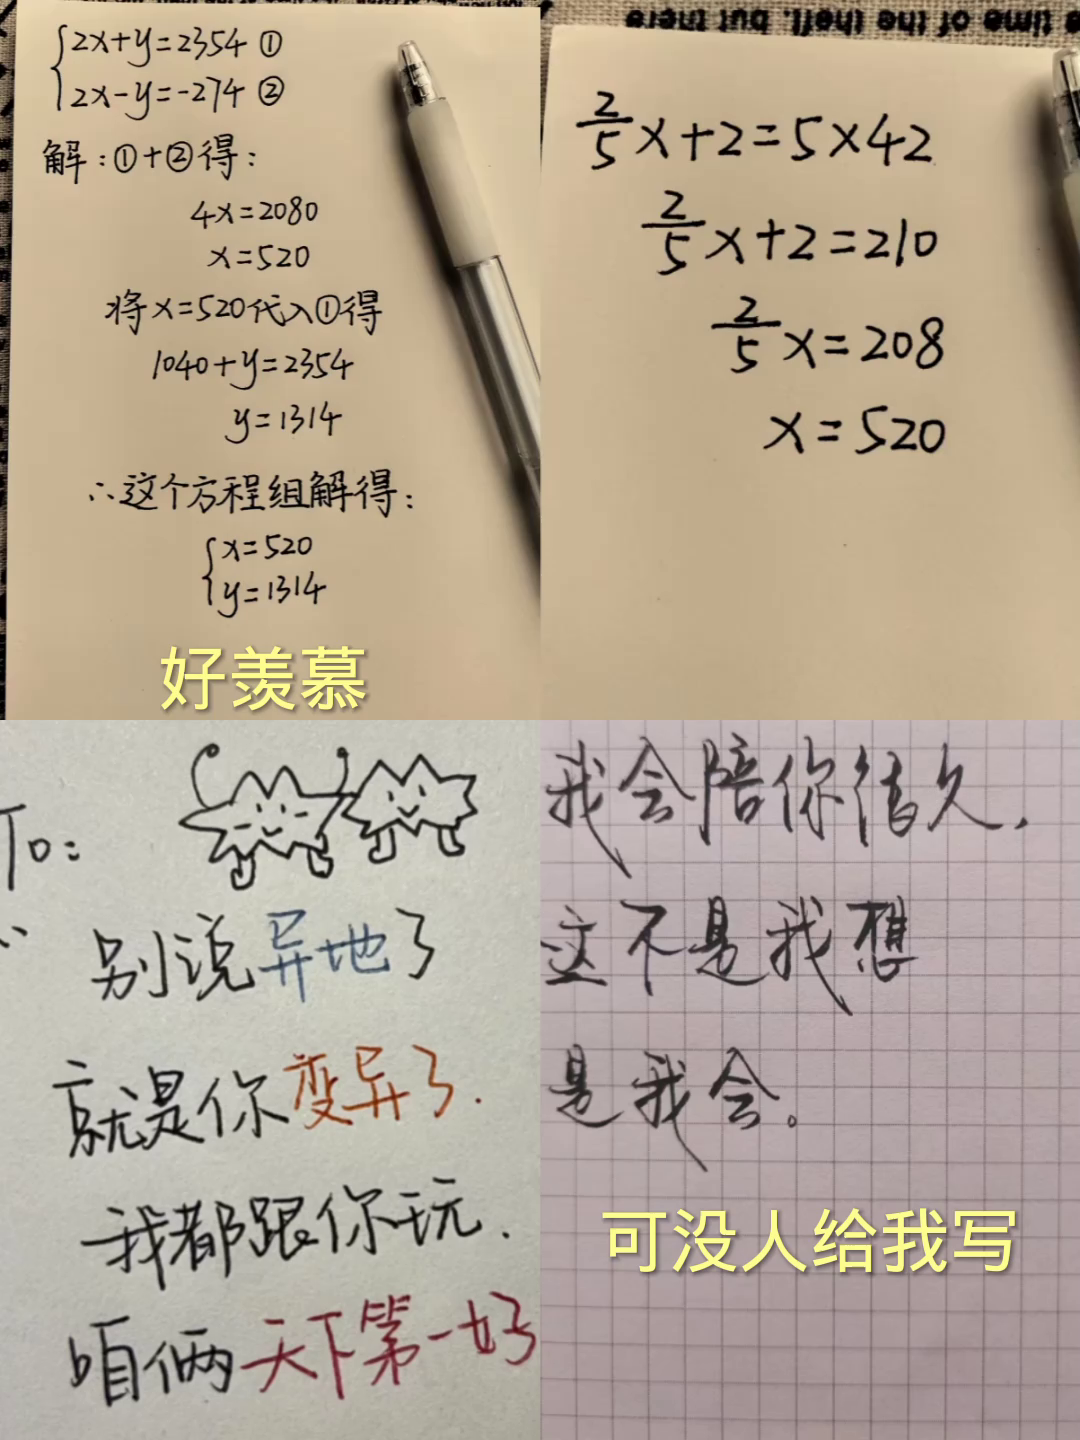 {2x+y=2354 ①
2x-y=-274 ②
解:①+②得:
4x=2080
x=520
将x=520代入①得
1040+y=2354
y=1314
∴这个方程组解得:
{x=520
y=1314
好羡慕
e time of the theft, but there
2/5x+2=5×42
2/5x+2=210
2/5x=208
x=520
To:
别说异地了
就是你变异了.
我都跟你玩.
咱俩天下第一好
我会陪你很久,
这不是我想
是我会。
可没人给我写